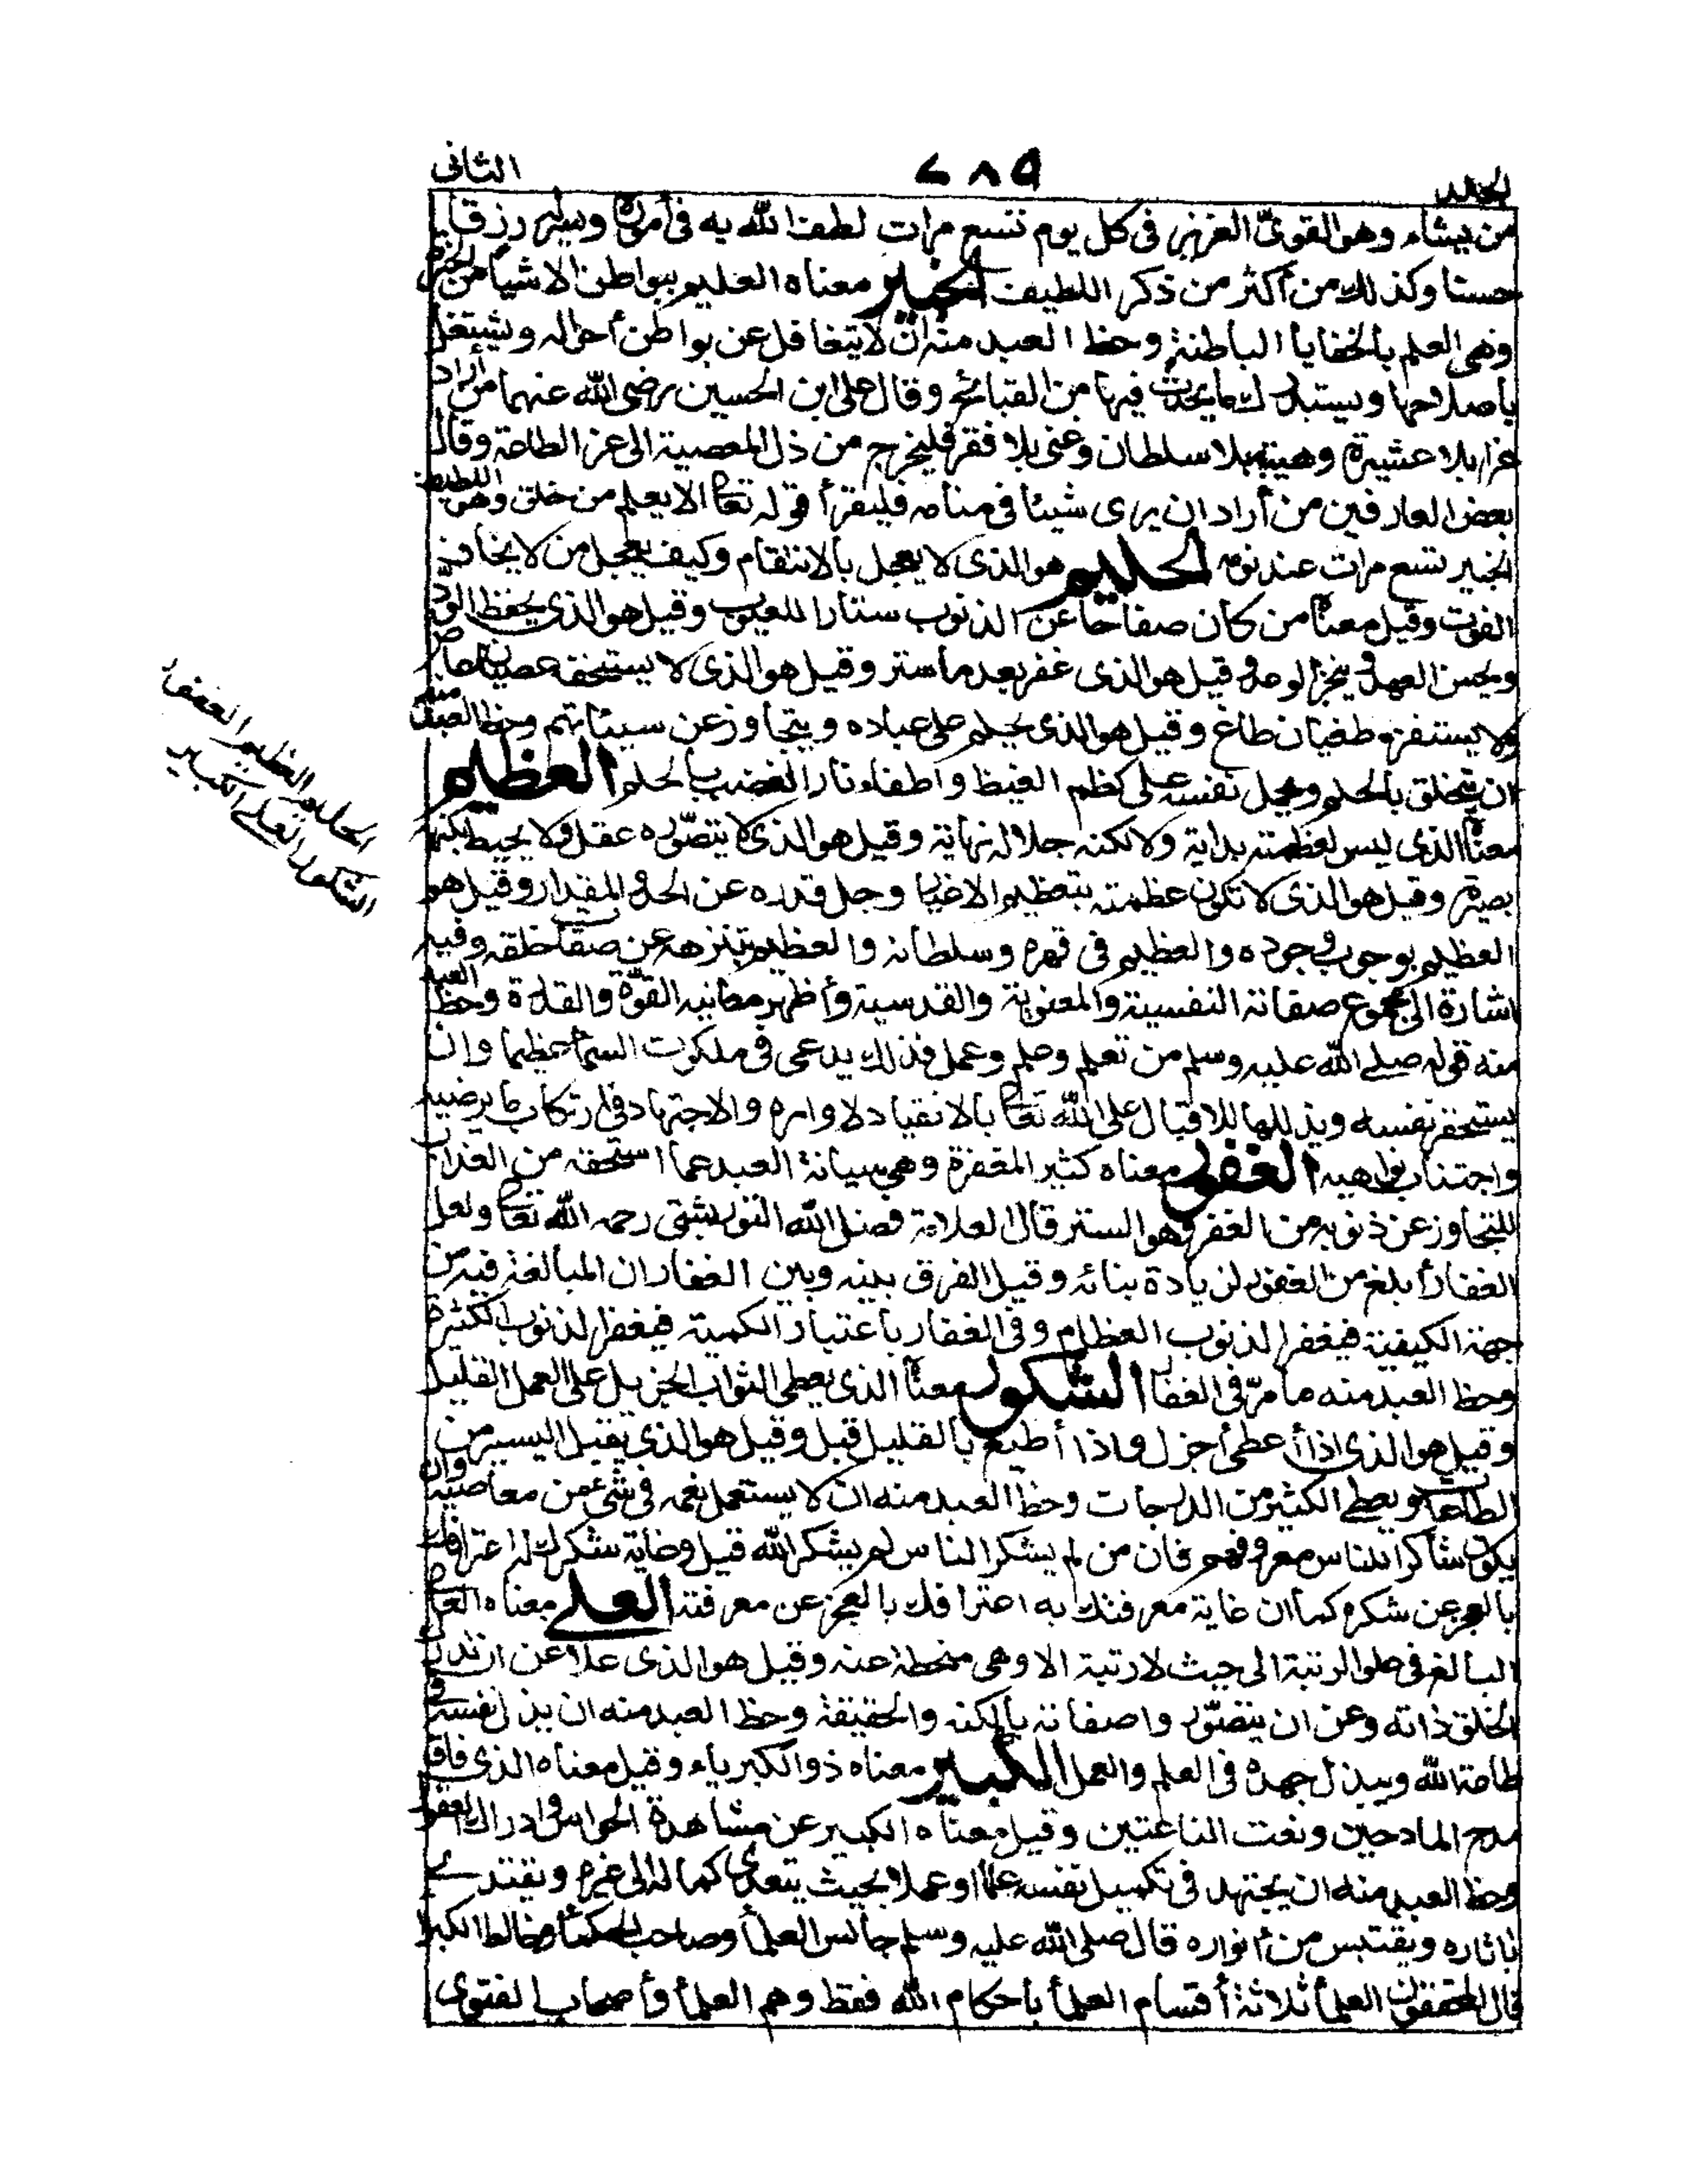 المجلد ٢٨٩ الثانى
من يشاء وهو القوىّ العزيز فى كل يوم تسع مرات لطف الله به فى أموره ويسر له رزقا
حسنا وكذلك من أكثر من ذكر اللطيف الخبير معناه العليم ببواطن الاشيأ من الخبرة
وهى العلم بالخفايا الباطنة وحظ العبد منه ان لا يتغافل عن بواطن أحواله ويشتغل
بأصلاحها ويستبدل لك ما يحدث فيها من القبائح وقال على ابن الحسين رضى الله عنهما من أراد
عزا بلا عشيرة وهيبة بلا سلطان وغنى بلا فقر فليخرج من ذل المعصية الى عز الطاعة وقال
بعض العارفين من أراد ان يرى شيئا فى منامه فليقرأ قوله تعالى الا يعلم من خلق وهو اللطيف
الخبير تسع مرات عند نومه الحليم هو الذى لا يعجل بالانتقام وكيف يعجل من لا يخاف
الفوت وقيل معناه من كان صفاحا عن الذنوب ستارا للعيوب وقيل هو الذى يحفظ الودّ
ويحسن العهد وينجز الوعد وقيل هو الذى غفر بعد ما ستر وقيل هو الذى لا يستخفه عصيان عاص
ولا يستفزه طغيان طاغ وقيل هو الذى يحلم على عباده ويتجاوز عن سيئاتهم وحظ العبد منه
ان يتخلق بالحلم ويحمل نفسه على كظم الغيظ واطفاء نار الغضب بالحلم العظيم
معناه الذى ليس لعظمته بداية ولا لكنه جلاله نهاية وقيل هو الذى لا يتصوّره عقل ولا يحيط بكنهه
بصيرة وقيل هو الذى لا تكون عظمته بتعظيم الاغيار وجل قدره عن الحد والمقدار وقيل هو
العظيم بوجوب وجوده والعظيم فى قهره وسلطانه والعظيم بتنزهه عن صفات خلقه وفيه
اشارة الى مجموع صفاته النفسية والمعنوية والقدسية وأظهر معانيه القوّة والقدرة وحظ العبد
منه قوله صلى الله عليه وسلم من تعلم وعلم وعمل فذلك يدعى فى ملكوت السمأ عظيما وان
يستحقر نفسه ويذللها للاقبال على الله تعالى بالانقياد لاوامره والاجتهاد فى ارتكاب ما يرضيه
واجتناب نواهيه الغفور معناه كثير المغفرة وهى صيانة العبد عما استحقه من العذاب
للتجاوز عن ذنوبه من الغفر وهو الستر قال العلامة فضل الله التوربشتى رحمه الله تعالى ولعل
الغفار أبلغ من الغفور لزيادة بنائه وقيل الفرق بينه وبين الغفار ان المبالغة فيه من
جهة الكيفية فيغفر الذنوب العظام وفى الغفار باعتبار الكمية فيغفر الذنوب الكثيرة
وحظ العبد منه ما مرّ فى الغفار الشكور معناه الذى يعطى الثواب الجزيل على العمل القليل
وقيل هو الذى اذا أعطى أجزل واذا أطيع بالقليل قبل وقيل هو الذى يقبل اليسير من
الطاعات ويعطى الكثير من الدرجات وحظ العبد منه ان لا يستعمل نعمه فى شئ من معاصيه وان
يكون شاكرا للناس معروفهم فان من لم يشكر الناس لم يشكر الله قيل وغاية شكرك له اعترافك
بالعجز عن شكره كما أن غاية معرفتك به اعترافك بالعجز عن معرفته العلى معناه العالى
البالغ فى علو الرتبة الى حيث لا رتبة الا وهى منحطة عنه وقيل هو الذى علا عن ان تدرك
الخلق ذاته وعن ان يتصوّر واصفاته بالكنه والحقيقة وحظ العبد منه ان يذل نفسه فى
طاعة الله ويبذل جهده فى العلم والعمل الكبير معناه ذو الكبرياء وقيل معناه الذى فاق
مدح المادحين ونعت الناعتين وقيل معناه الكبير عن مشاهدة الحواس وادراك العقول
وحظ العبد منه ان يجتهد فى تكميل نفسه علما وعملا بحيث يتعدى كماله الى غيره ويقتدى
باثاره ويقتبس من أنواره قال صلى الله عليه وسلم جالس العلمأ وصاحب الحكمأ وخالط الكبرا
قال المحققون العلمأ ثلاثة أقسام العلمأ بأحكام الله فقط وهم العلمأ وأصحاب الفتوى
الحليم العظيم الغفور
الشكور العلى الكبير